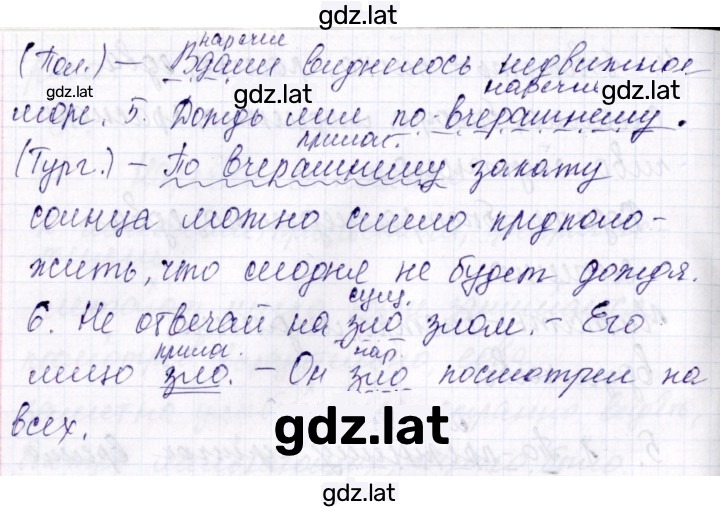 gdz.lat
наречие
(Пол.) – Вдали виднелось недвижное
наречие
море. 5. Дождь лил по вчерашнему.
прилаг.
(Тург.) – По вчерашнему закату
солнца можно смело предполо-
жить, что сегодня не будет дождя.
сущ.
6. Не отвечай на зло злом. – Его
прилаг. нар.
лицо зло. – Он зло посмотрел на
всех.
gdz.lat
gdz.lat